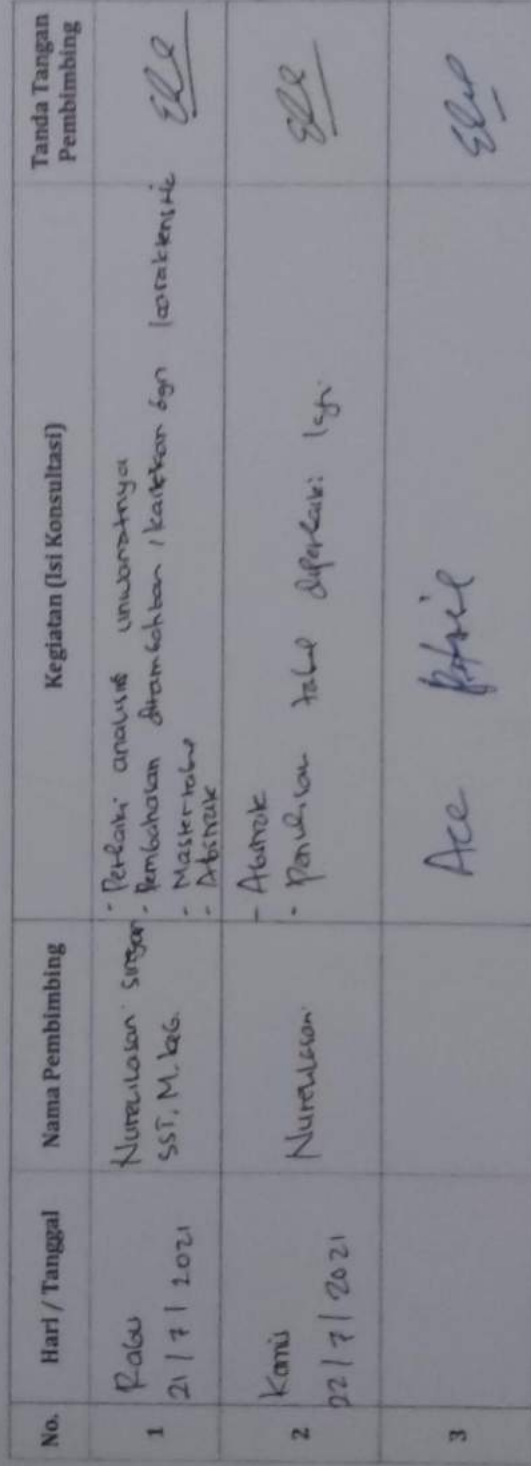 No. Hari / Tanggal Nama Pembimbing Kegiatan (Isi Konsultasi) Tanda Tangan Pembimbing
1
Rabu
21 / 7 / 2021
SST, M. Keb.
- Perbaiki analisis univariatnya
- Pembahasan ditambahkan / kaitkan dgn karakteristic
- Master tabel
- Abstrak
2
Kamis
22 / 7 / 2021
- Abstrak
- Penulisan tabel diperbaiki lgi.
3
Acc